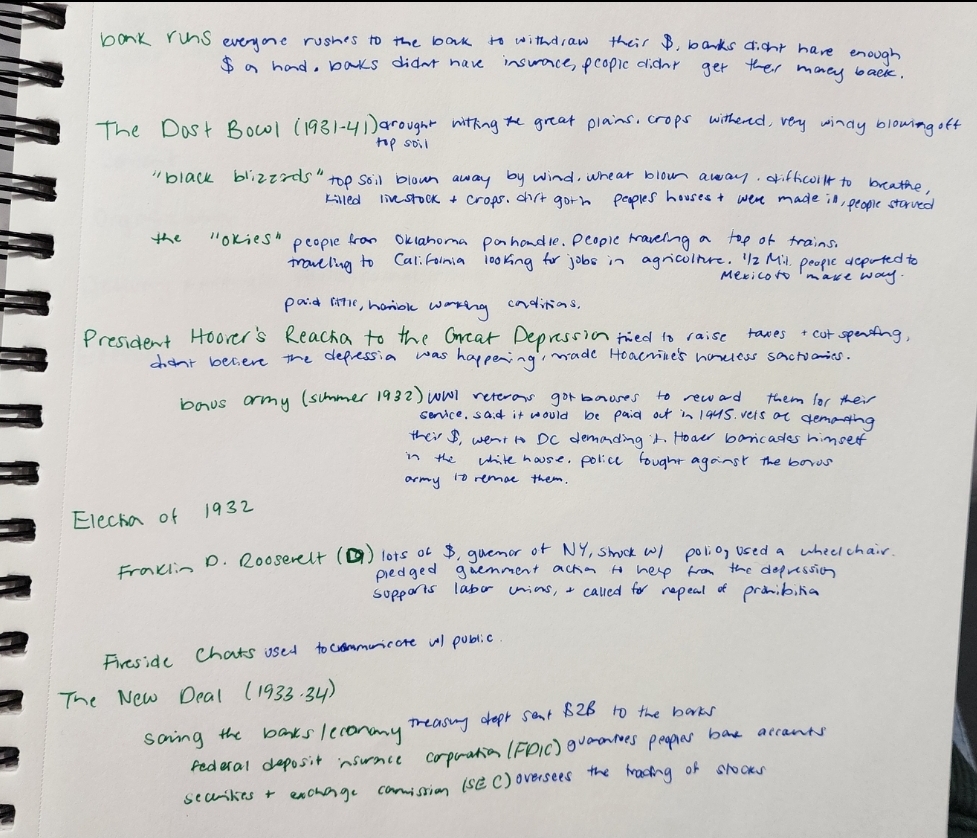 bank runs everyone rushes to the bank to withdraw their $, banks didnt have enough
$ on hand. banks didnt have insurance, people didnt get their money back.
The Dust Bowl (1931-41) drought hitting the great plains. crops withered, very windy blowing off
top soil
"black blizzards" top soil blown away by wind. wheat blown away. difficult to breathe,
killed livestock + crops. dirt got in peoples houses + were made ill, people starved
the "okies" people from Oklahoma panhandle. People traveling on top of trains.
traveling to California looking for jobs in agriculture. 1/2 Mil. people deported to
Mexico to make way.
paid little, horrible working conditions.
President Hoover's Reaction to the Great Depression tried to raise taxes + cut spending,
didnt believe the depression was happening, made Hooverville's homeless
bonus army (summer 1932) WW1 veterans got bonuses to reward them for their
service. said it would be paid out in 1945. vets are demanding
their $, went to DC demanding it. Hoover baricades himself
in the white house. police fought against the bonus
army to remove them.
Election of 1932
Franklin D. Roosevelt (D) lots of $, governor of NY, struck w/ polio, used a wheelchair.
pledged government action to help from the depression
supports labor unions, + called for repeal of prohibition
Fireside Chats used to communicate w/ public.
The New Deal (1933-34)
saving the banks/economy treasury dept sent $2B to the banks
federal deposit insurance corporation (FDIC) guarantees peoples bank accounts
securities + exchange commission (SEC) oversees the trading of stocks